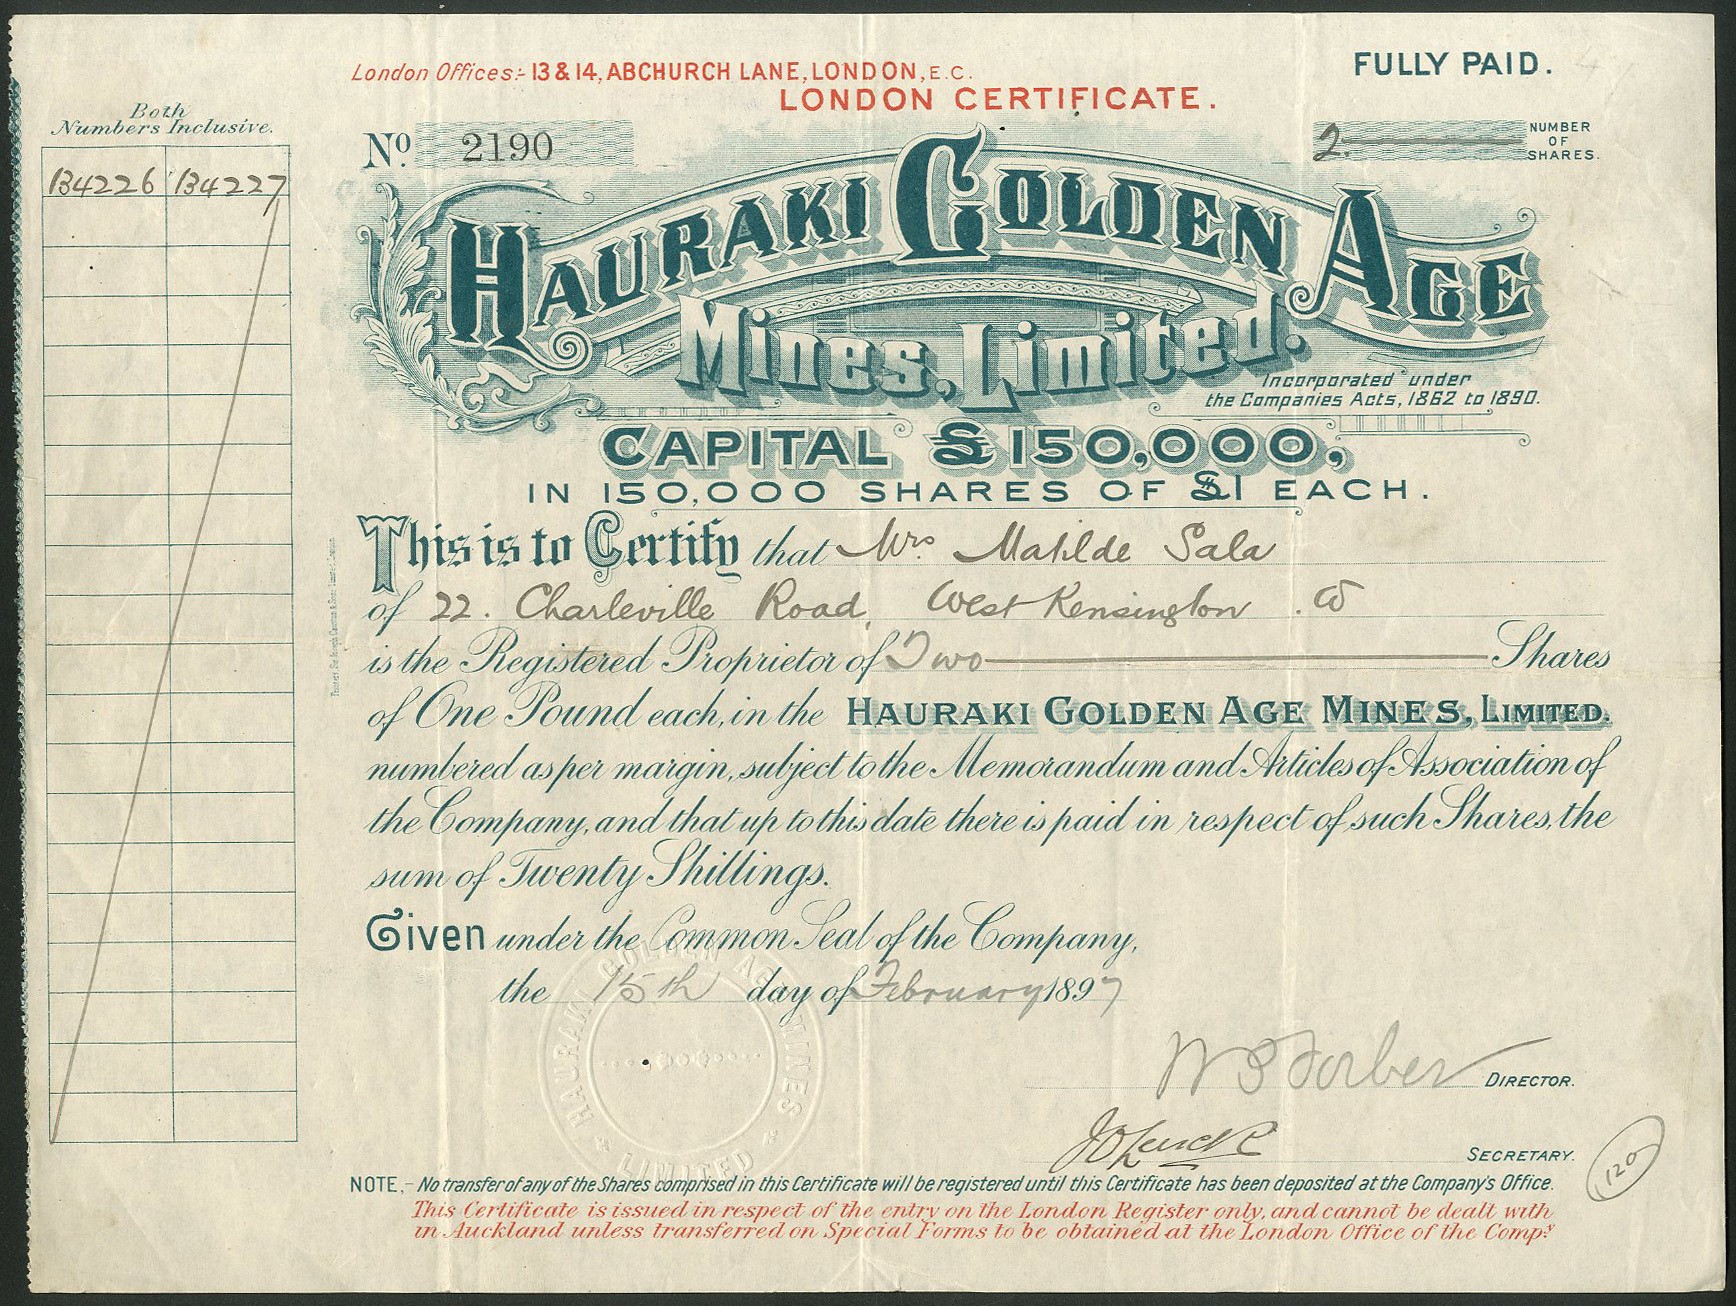 London Offices:- 13 & 14, ABCHURCH LANE, LONDON, E.C.
FULLY PAID.
LONDON CERTIFICATE.
Both
Numbers Inclusive.
134226 134227
No 2190
2.
NUMBER
OF
SHARES.
HAURAKI GOLDEN AGE
Mines, Limited.
Incorporated under
the Companies Acts, 1862 to 1890.
CAPITAL £150,000,
IN 150,000 SHARES OF £1 EACH.
This is to Certify that Mrs Matilde Sala
of 22. Charleville Road, West Kensington. W
is the Registered Proprietor of Two Shares
of One Pound each, in the HAURAKI GOLDEN AGE MINES, LIMITED.
numbered as per margin, subject to the Memorandum and Articles of Association of
the Company, and that up to this date there is paid in respect of such Shares, the
sum of Twenty Shillings.
Given under the Common Seal of the Company,
the 15th day of February 1897
HAURAKI GOLDEN AGE MINES
LIMITED
W S Forbes DIRECTOR.
SECRETARY.
120
NOTE,- No transfer of any of the Shares comprised in this Certificate will be registered until this Certificate has been deposited at the Company's Office.
This Certificate is issued in respect of the entry on the London Register only, and cannot be dealt with
in Auckland unless transferred on Special Forms to be obtained at the London Office of the Compy